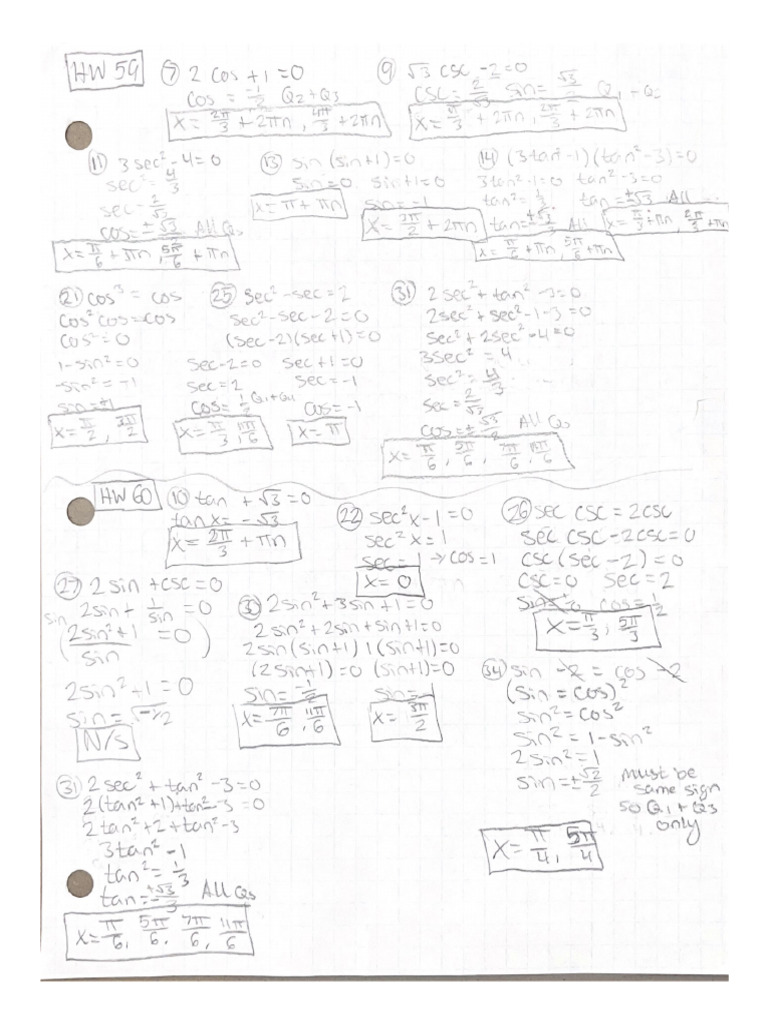 HW 59
⑦ 2 cos + 1 = 0
cos = -1/2 Q2 + Q3
x = 2π/3 + 2πn, 4π/3 + 2πn
⑨ √3 csc - 2 = 0
csc = 2/√3 sin = √3/2 Q1 + Q2
x = π/3 + 2πn, 2π/3 + 2πn
⑪ 3 sec² - 4 = 0
sec² = 4/3
sec = 2/√3
cos = ±√3/2 All Qs
x = π/6 + πn, 5π/6 + πn
⑬ sin (sin + 1) = 0
sin = 0 sin + 1 = 0
sin = -1
x = π + πn
x = 3π/2 + 2πn
⑭ (3tan² - 1)(tan² - 3) = 0
3tan² - 1 = 0 tan² - 3 = 0
tan² = 1/3 tan = ±√3 All
tan = ±√3/3 All
x = π/3 + πn, 2π/3 + πn
x = π/6 + πn, 5π/6 + πn
㉑ cos³ = cos
cos² cos = cos
cos² = 0
1 - sin² = 0
-sin² = -1
sin = ±1
x = π/2, 3π/2
㉕ sec² - sec = 2
sec² - sec - 2 = 0
(sec - 2)(sec + 1) = 0
sec - 2 = 0 sec + 1 = 0
sec = 2 sec = -1
cos = 1/2 Q1 + Q4 cos = -1
x = π/3, 11π/6
x = π
㉛ 2 sec² + tan² - 3 = 0
2sec² + sec² - 1 - 3 = 0
sec² + 2sec² - 4 = 0
3sec² = 4
sec² = 4/3
sec = 2/√3
cos = ±√3/2 All Qs
x = π/6, 5π/6, 7π/6, 11π/6
HW 60
⑩ tan + √3 = 0
tan x = -√3
x = 2π/3 + πn
㉒ sec²x - 1 = 0
sec²x = 1
sec = 1 → cos = 1
x = 0
㉖ sec csc = 2csc
sec csc - 2csc = 0
csc (sec - 2) = 0
csc = 0 sec = 2
cos = 1/2
x = π/3, 5π/3
㉗ 2 sin + csc = 0
sin 2sin + 1/sin = 0
(2sin² + 1 / sin = 0)
2sin² + 1 = 0
sin = √-1/2
N/S
㉚ 2sin² + 3sin + 1 = 0
2sin² + 2sin + sin + 1 = 0
2sin (sin+1) 1(sin+1) = 0
(2sin+1) = 0 (sin+1) = 0
sin = -1/2 sin = -1
x = 7π/6, 11π/6
x = 3π/2
㉞ sin - 2 = cos - 2
(sin = cos)²
sin² = cos²
sin² = 1 - sin²
2sin² = 1
sin = ±√2/2
must be
same sign
so Q1 + Q3
only
x = π/4, 5π/4
㉛ 2 sec² + tan² - 3 = 0
2(tan² + 1) + tan² - 3 = 0
2tan² + 2 + tan² - 3
3tan² - 1
tan² = 1/3
tan = ±√3/3 All Qs
x = π/6, 5π/6, 7π/6, 11π/6